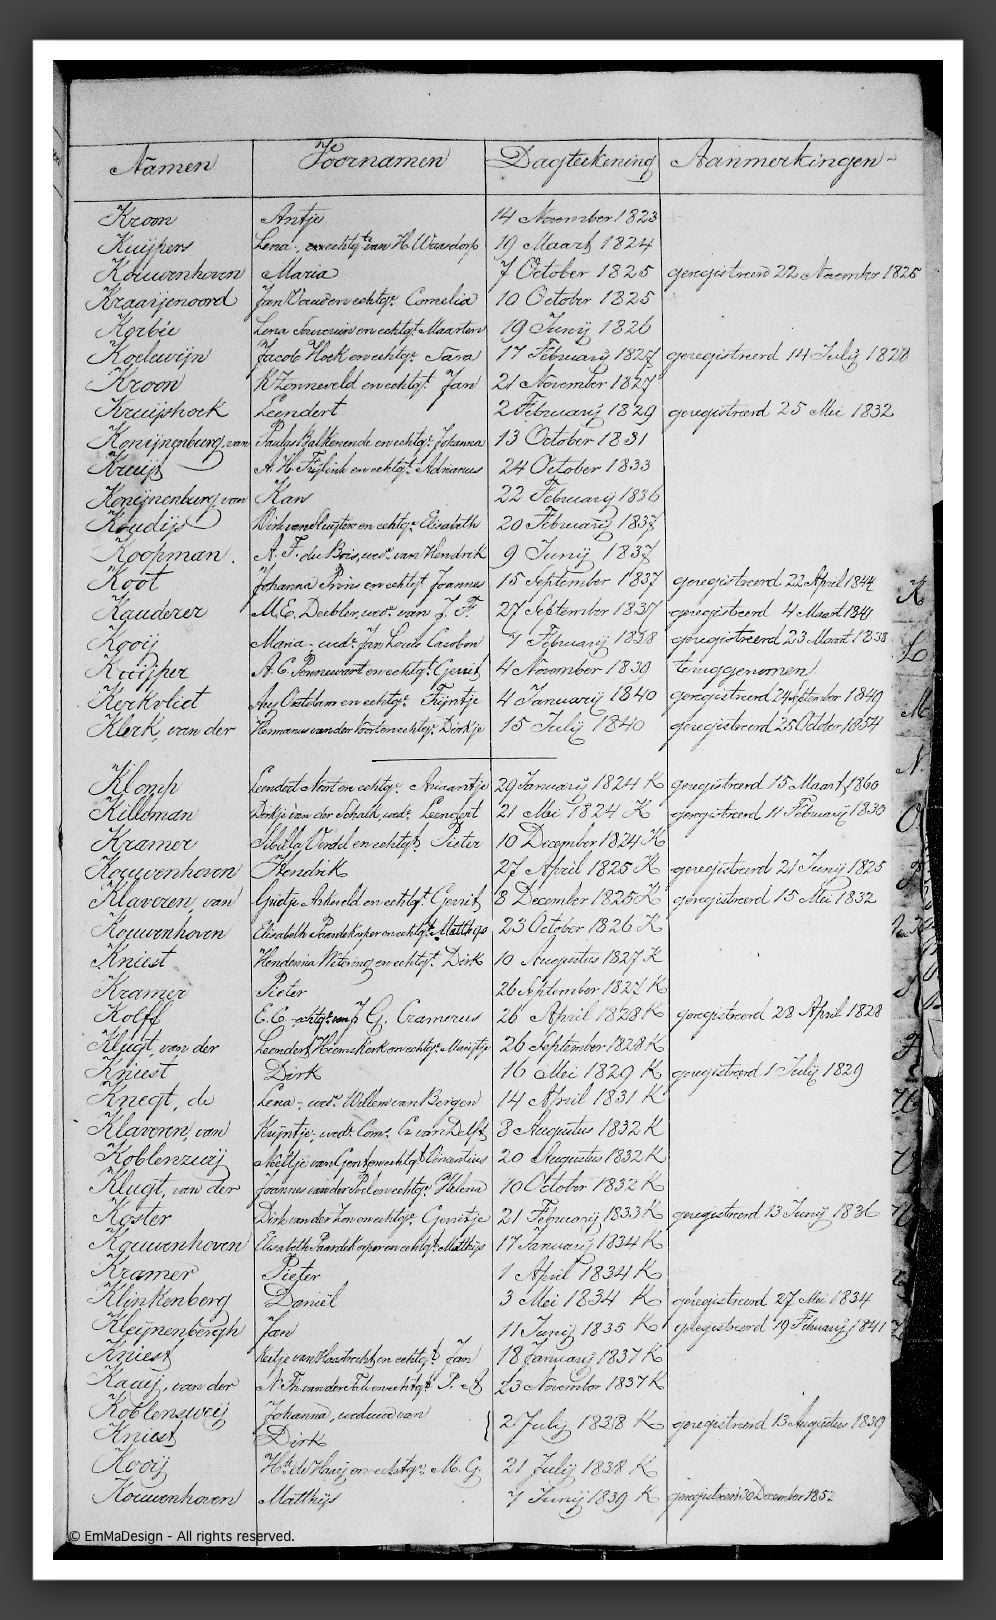 Namen Voornamen Dagteekening Aanmerkingen
Kroon Antje 14 November 1823
Kuijpers Lena, en echtgt van H. Wassdorp 19 Maart 1824
Kouwenhoven Maria 7 October 1825 geregistreerd 22 November 1825
Kraaijenoord Jan en echtgt Cornelia 10 October 1825
Korbée Lena en echtgt Maarten 19 Junij 1826
Koelewijn Jacob Hoek en echtgt Sara 17 February 1827 geregistreerd 14 July 1828
Kroon K Zonneveld en echtgt Jan 21 November 1827
Kruijshoek Leendert 2 February 1829 geregistreerd 25 Mei 1832
Konijnenburg, van Paulus Balkenende en echtgt Johanna 13 October 1831
Kruijt A. H. en echtgt Adrianus 24 October 1833
Konijnenburg, van Kan 22 February 1836
Koudijs Dirk van Sluijter en echtgt Elisabeth 20 February 1837
Koopman. A. F. du Bois, wede van Hendrik 9 Junij 1837
Koot Johanna Prins en echtgt Joannes 15 September 1837 geregistreerd 22 April 1844
Kauderer M. E. Deebler, wede van J. F. 27 September 1837 geregistreerd 4 Maart 1840
Kooij Maria - wede Jan Louis Caubon 7 February 1838 geregistreerd 23 Maart 1838
Kuijper A. C. Pennewart en echtgt Gerrit 4 November 1839 teruggenomen
Kerkvliet Arij Oostdam en echtgt Trijntje 4 January 1840 geregistreerd 24 September 1849
Klerk, van der Hermanus van der Voort en echtgt Dirkje 15 July 1840 geregistreerd 25 October 1854
Klomp Leendert Noort en echtgt Ariaantje 29 January 1824 K geregistreerd 15 Maart 1860
Killeman Dirkje van der Schalk, wede Leendert 21 Mei 1824 K geregistreerd 11 February 1830
Kramer Sibilla Verdel en echtgt Pieter 10 December 1824 K
Kouwenhoven Hendrik 27 April 1825 K geregistreerd 21 Junij 1825
Klaveren, van Grietje en echtgt Gerrit 8 December 1825 K geregistreerd 15 Mei 1832
Kouwenhoven Elisabeth Paardekoper en echtgt Matthijs 23 October 1826 K
Kniest Hendrina Wetering en echtgt Dirk 10 Augustus 1827 K
Kramer Pieter 26 September 1827 K
Kolff E. C. echtgt van J. G. Cramerus 26 April 1828 K geregistreerd 28 April 1828
Klugt, van der Leendert Heemskerk en echtgt Marijtje 26 September 1828 K
Kniest Dirk 16 Mei 1829 K geregistreerd 1 July 1829
Knegt, de Lena, wede Willem van Bergen 14 April 1831 K
Klaveren, van Krijntje, wede Corns Cz van Delft 8 Augustus 1832 K
Koblenzeij Neeltje van Gent en echtgt Vincentius 20 Augustus 1832 K
Klugt, van der Joannes van der Poel en echtgt Helena 10 October 1832 K
Koster Dirk van der Zon en echtgt Gerritje 21 February 1833 K geregistreerd 13 Junij 1836
Kouwenhoven Elisabeth Paardekoper en echtgt Matthijs 17 January 1834 K
Kramer Pieter 1 April 1834 K
Klinkenberg Daniël 3 Mei 1834 K geregistreerd 27 Mei 1834
Kleijnenbergh Jan 11 Junij 1835 K geregistreerd 19 February 1841
Kniest Eeitje van Haastrecht en echtgt Jan 18 January 1837 K
Kaaij, van der N. Th. van der en echtgt P. A 23 November 1837 K
Koblensweij Johanna, weduwe van
Kniest Dirk 2 July 1838 K geregistreerd 13 Augustus 1839
Kooij Hk de Haaij en echtgt M. G. 21 July 1838 K
Kouwenhoven Matthijs 7 Junij 1839 K geregistreerd 30 December 1852
K
L
M
N.
O
© EmMaDesign - All rights reserved.